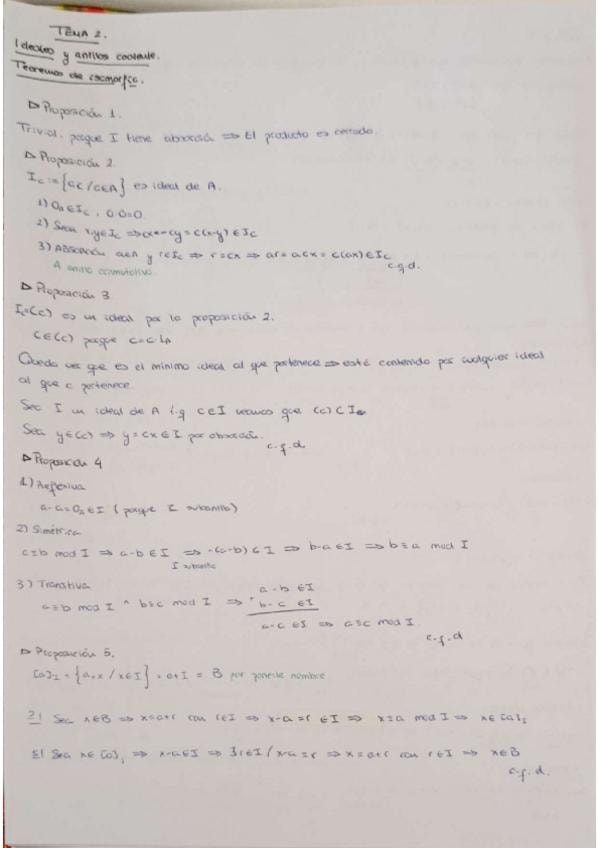 TEMA 2.
Ideales y anillos cociente.
Teoremas de isomorfía.
▷ Proposición 1.
Trivial, porque I tiene absorción ⇒ El producto es cerrado.
▷ Proposición 2.
I_c := {ac / a∈A} es ideal de A.
1) 0_A ∈ I_c, 0·0=0
2) Sean x,y ∈ I_c ⇒ cx - cy = c(x-y) ∈ I_c
3) Absorción a∈A y r∈I_c ⇒ r = cx ⇒ ar = acx = c(ax) ∈ I_c
c.q.d.
A anillo conmutativo.
▷ Proposición 3
I_c=(c) es un ideal por la proposición 2.
c∈(c) porque c=c·1_A
Queda ver que es el mínimo ideal al que pertenece ⇒ está contenido por cualquier ideal
al que c pertenece.
Sea I un ideal de A t.q c∈I veamos que (c)⊂I
Sea y∈(c) ⇒ y = cx ∈ I por absorción.
c.q.d
▷ Proposición 4
1) Reflexiva
a-a=0_A∈I (porque I subanillo)
2) Simétrica
a≡b mod I ⇒ a-b∈I ⇒ -(a-b)∈I ⇒ b-a∈I ⇒ b≡a mod I
I subanillo
3) Transitiva
a≡b mod I ^ b≡c mod I ⇒ a-b ∈I
+ b-c ∈I
a-c ∈I ⇒ a≡c mod I
c.q.d
▷ Proposición 5.
[a]_I = {a+x / x∈I} = a+I = B por ponerle nombre
⊇| Sea x∈B ⇒ x=a+r con r∈I ⇒ x-a=r ∈I ⇒ x≡a mod I ⇒ x∈[a]_I
⊆| Sea x∈[a]_I ⇒ x-a∈I ⇒ ∃r∈I / x-a=r ⇒ x=a+r con r∈I ⇒ x∈B
c.q.d.